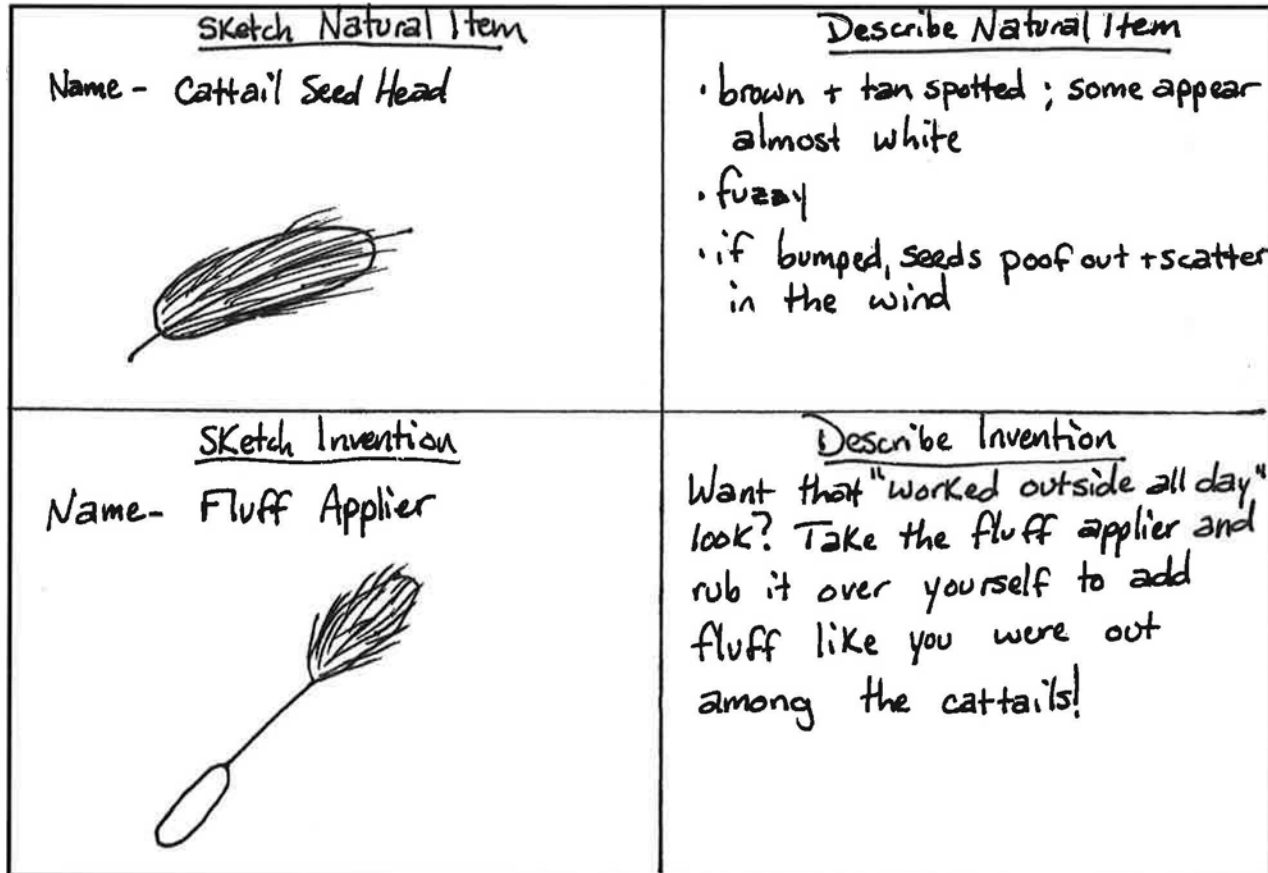 Sketch Natural Item
Name - Cattail Seed Head
Describe Natural Item
• brown + tan spotted ; some appear
almost white
• fuzzy
• if bumped, seeds poof out + scatter
in the wind
Sketch Invention
Name - Fluff Applier
Describe Invention
Want that "worked outside all day"
look? Take the fluff applier and
rub it over yourself to add
fluff like you were out
among the cattails!